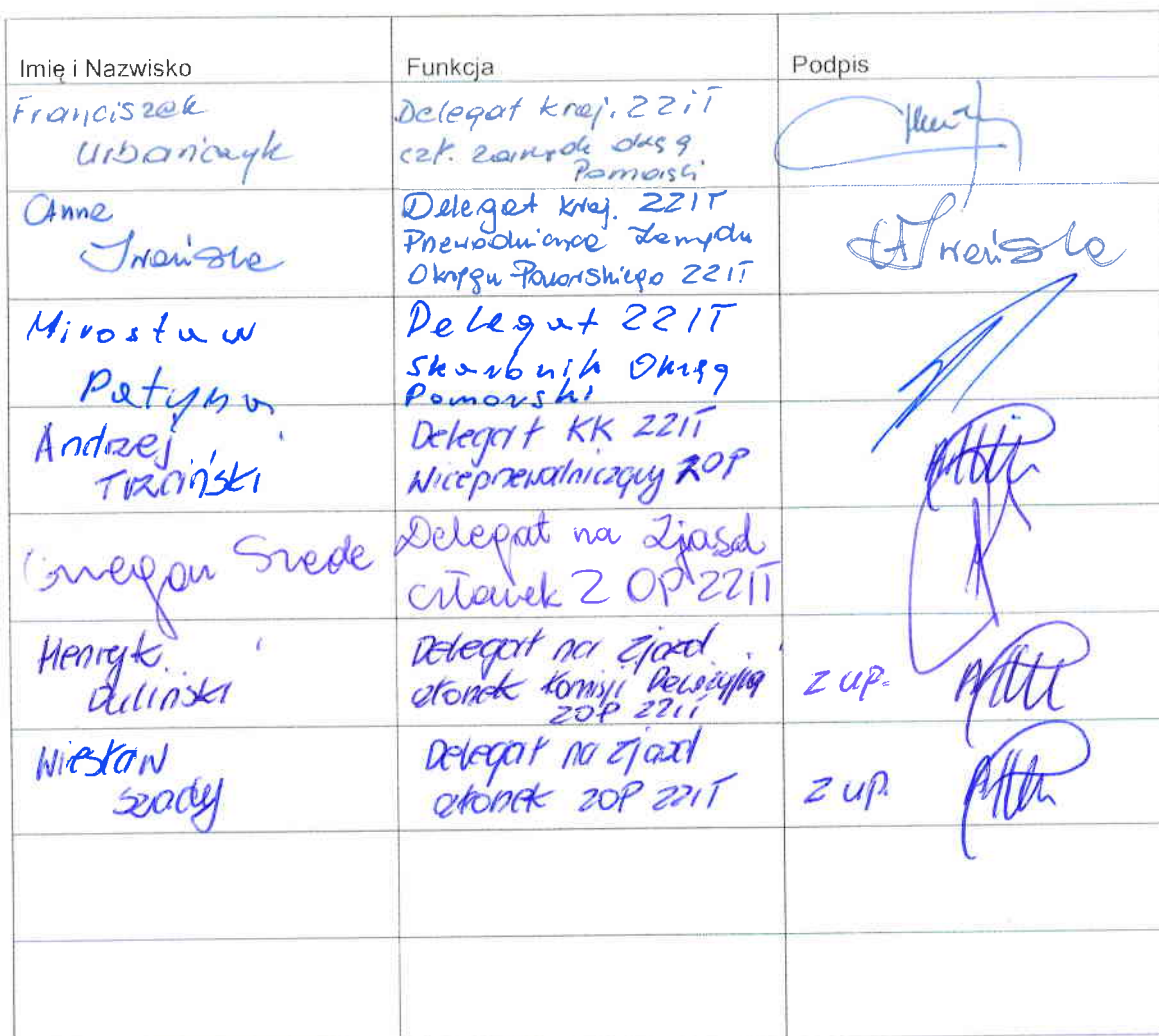 Imię i Nazwisko
Funkcja
Podpis
Franciszek
Urbańczyk
Delegat kraj. ZZIT
czł. zarządu okrę
Pomorski
Anna
Iwańska
Delegat kraj. ZZIT
Przewodnicząca Zarządu
Okręgu Pomorskiego ZZIT
Mirosław
Patyna
Delegat ZZIT
Skarbnik Okręg
Pomorski
Andrzej
Trzciński
Delegat KK ZZIT
Wiceprzewodniczący ZOP
Grzegorz Srede
Delegat na Zjazd
członek Z OP ZZIT
Henryk
Duliński
Delegat na Zjazd
członek Komisji Rewizyjnej
ZOP ZZIT
z up.
Wiesław
Szady
Delegat na Zjazd
członek ZOP ZZIT
z up.